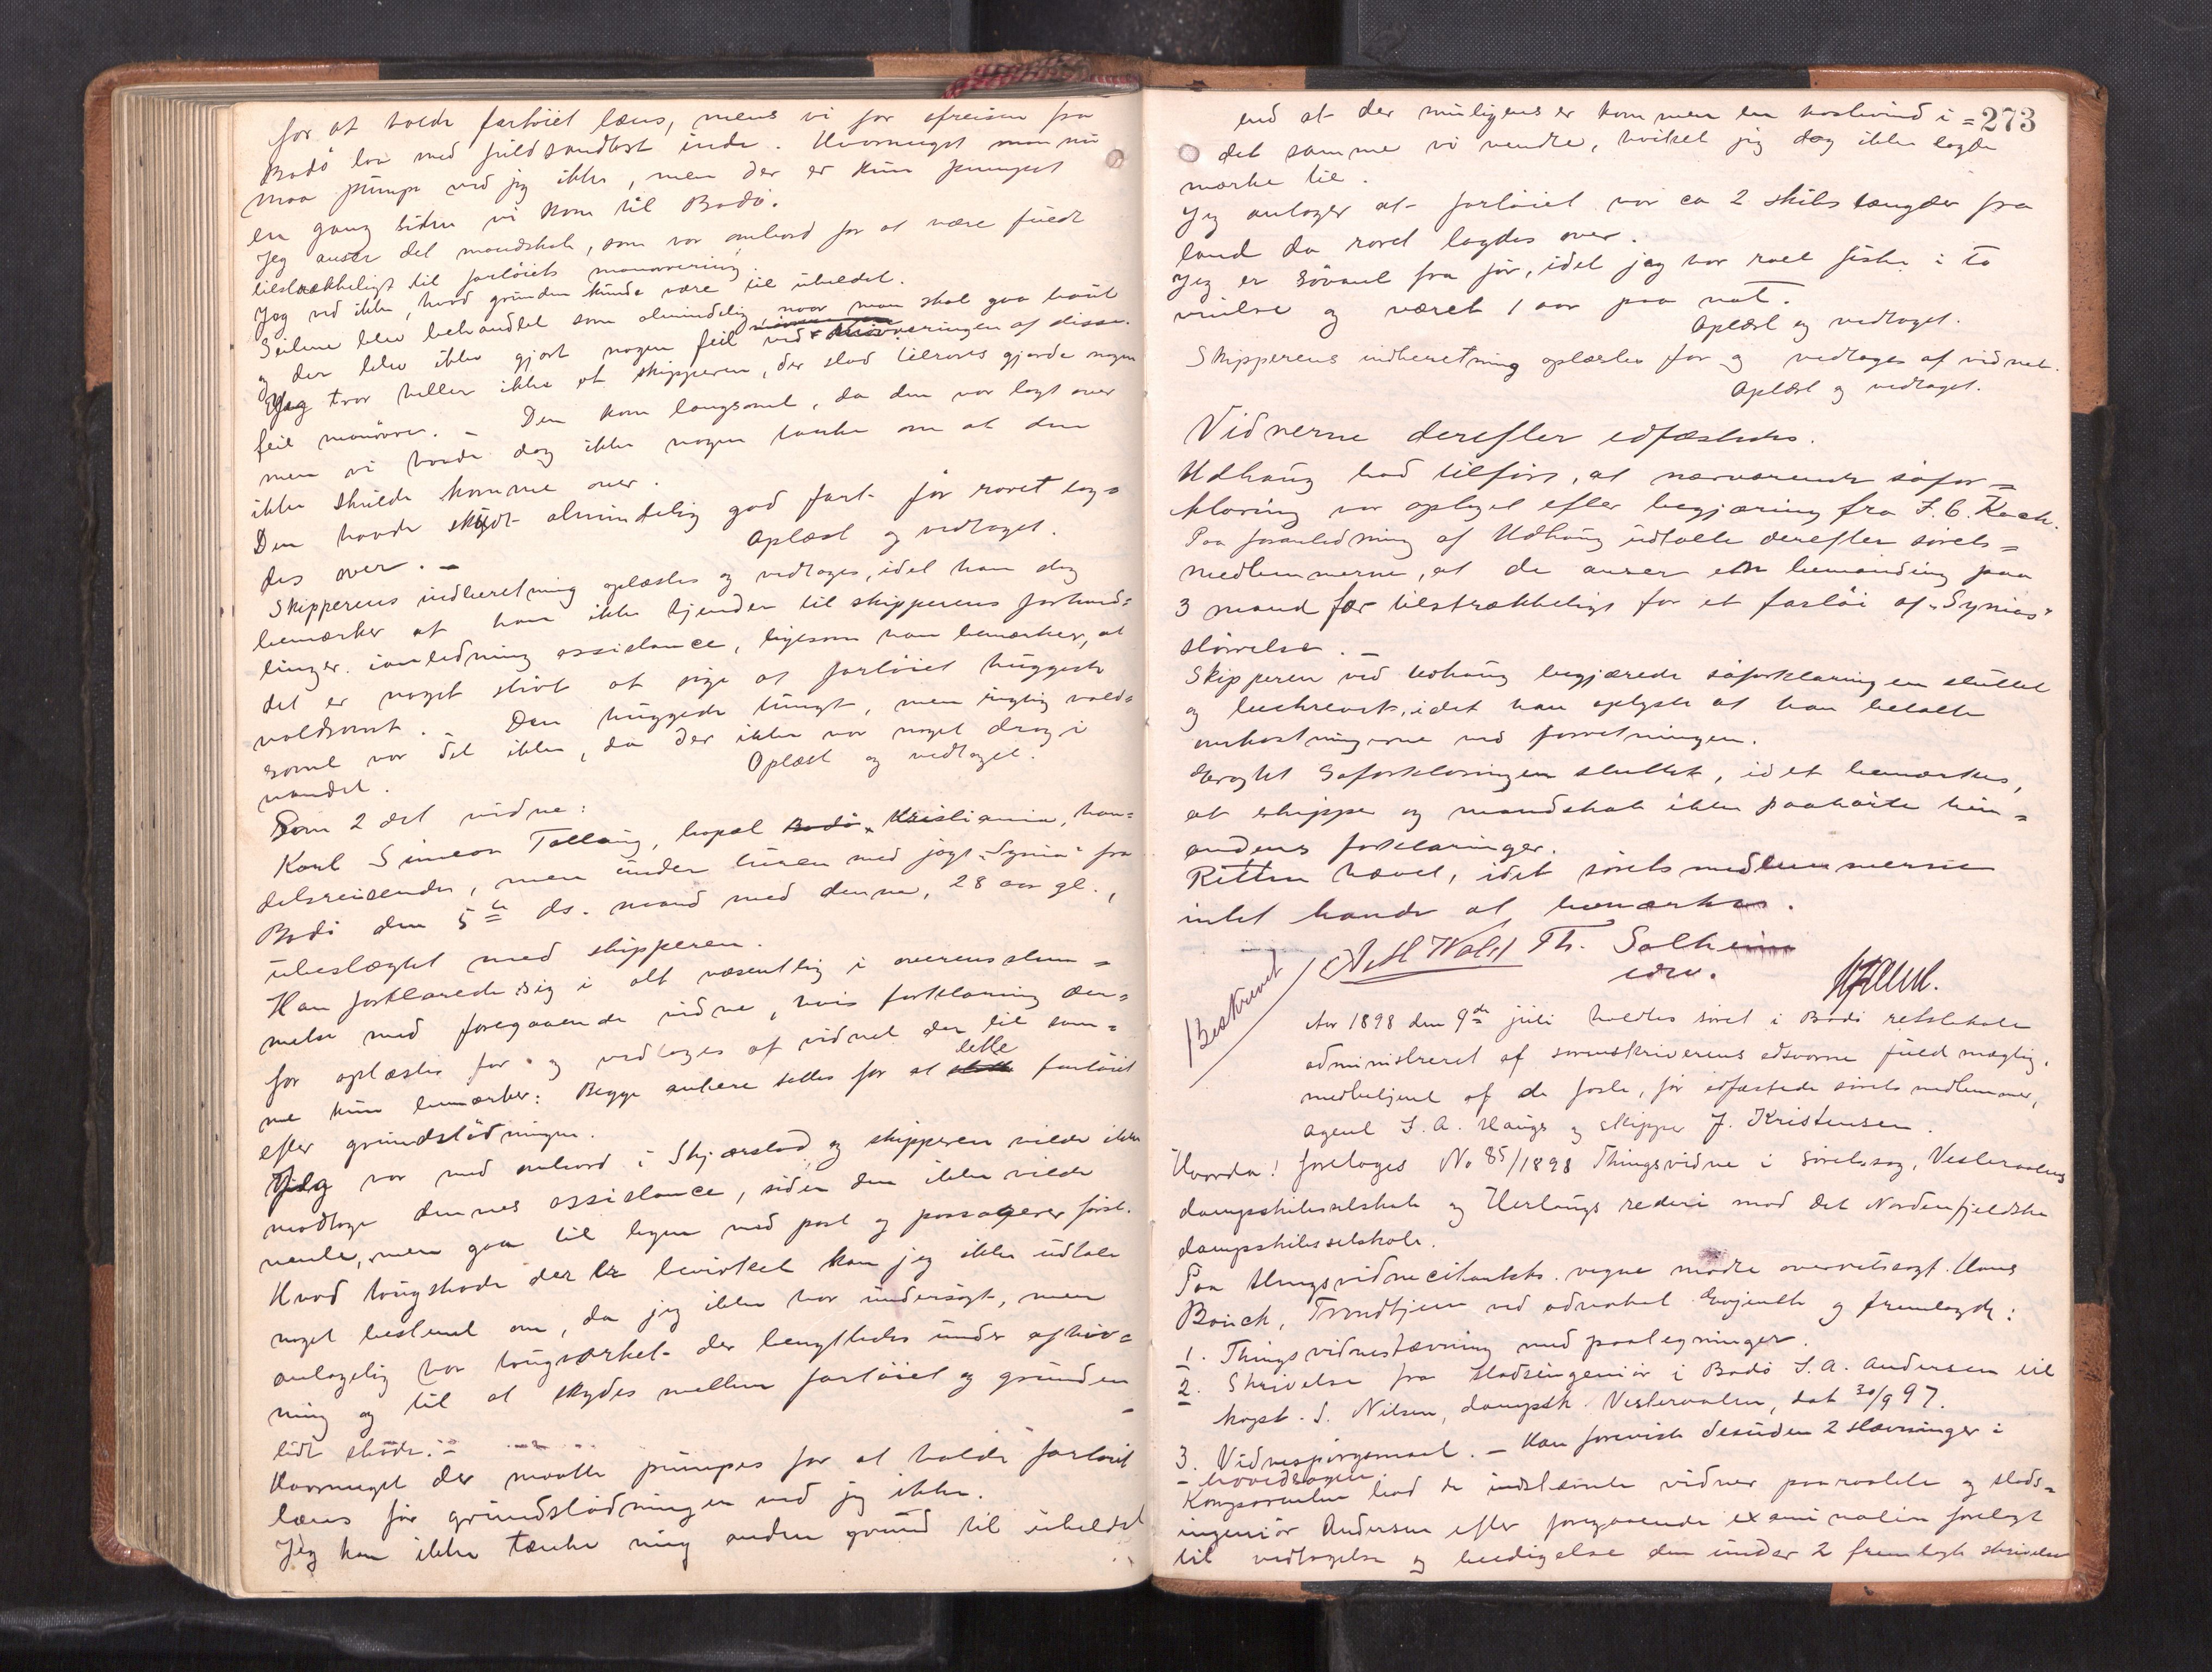 for at holde fartöiet læns, mens vi før afreisen fra
Bodö laa med fuld sandlast inde. Hvormeget man nu
maa pumpe ved jeg ikke, men der er kun pumpet
en gang siden vi kom til Bodö.
Jeg anser det mandskab, som var ombord for at være fuldt
tilstrækkeligt til fartöiets manøvrering.
Jeg ved ikke, hvad grunden kunde være til uheldet.
Seilene blev behandlet som almindelig naar man skal gaa baut
og der blev ikke gjort nogen feil ved manøvreringen af disse.
Jeg tror heller ikke at skipperen, der stod tilrors gjorde nogen
feil manövre. – Den kom langsomt, da den var lagt over
men vi havde dog ikke nogen tanke om at den
ikke skulde komme over.
Den havde skudt almindelig god fart før roret lag=
des over. – Oplæst og vedtaget.
Skipperens indberetning oplæstes og vedtoges, idet han dog
bemærker at han ikke kjender til skipperens forhand=
linger ianledning assistance, ligesom han bemærker, at
det er noget stivt at sige at fartöiet huggede
voldsomt. – Den huggede tungt, men rigtig vold=
somt var det ikke, da der ikke var noget drag i
vandet. Oplæst og vedtaget.
Som 2det vidne:
Karl Simeon Tallaug, bopæl Bodö, Kristiania, han=
delsreisende, men under turen med jagt "Synia" fra
Bodö den 5te ds. mand med denne, 28 aar gl.,
ubeslægtet med skipperen.
Han forklarede sig i alt væsentlig i overensstem=
melse med foregaaende vidne, hvis forklaring den=
for oplæstes for og vedtoges af vidnet der til sam=
me kun bemærker: Begge ankere sattes for at lette fartöiet
efter grundstödningen.
Jeg var med ombord i Skjærstad og skipperen vilde ikke
modtage dennes assistance, siden den ikke vilde
vente, men gaa til byen med post og passagerer først.
Hvad taugskade der er bevirket kan jeg ikke udtale
noget bestemt om, da jeg ikke har undersögt, men
antagelig har taugværket der benyttedes under afhiv=
ning og til at skydes mellem fartöiet og grunden
lidt skade. –
Hvormeget der maatte pumpes for at holde fartöiet
læns før grundstödningen ved jeg ikke.
Jeg kan ikke tænke mig anden grund til uheldet
273
end at der muligens er kommen en kastevind i =
det samme vi vendte, hvilket jeg dog ikke lagde
mærke til.
Jeg antager at fartöiet var ca 2 skibslængder fra
land da roret lagdes over.
Jeg er søvant fra før, idet jeg har roet fiske i to
vintre og været 1 aar paa not.
Oplæst og vedtaget.
Skipperens indberetning oplæstes for og vedtoges af vidnet.
Oplæst og vedtaget.
Vidnerne derefter edfæstedes.
Udhaug bad tilført, at nærværende søfor=
klaring var optaget efter begjæring fra J. C. Koch.
Paa foranledning af Udhaug udtalte derefter sørets=
medlemmerne, at de anser en bemanding paa
3 mand for tilstrækkeligt for et fartöi af "Synias"
størrelse. –
Skipperen ved Udhaug begjærede søforklaringen sluttet
og beskrevet, idet han oplyste at han betalte
omkostningerne ved forretningen.
Eragtet Søforklaringen sluttet, idet bemærkes,
at skipper og mandskab ikke paahørte hin=
andens forklaringer.
Retten hævet, idet søretsmedlemmerne
intet havde at bemærke.
Th. Solheim
edsv.
Beskrevet
Aar 1898 den 9de juli holdtes søret i Bodö retslokale
administreret af sorenskriverens edsvorne fuldmægtig,
medbetjent af de faste, før edfæstede søretsmedlemmer,
agent S. A. Hauge og skipper J. Kristensen.
Hvorda! foretoges No 85/1898 Thingsvidne i søretssag, Vesteraalens
dampskibsselskab og Herlaugs rederi mod det Nordenfjeldske
dampskibsselskab.
Paa thingsvidnecitantets vegne mødte overretssagf. Hans
Bauck, Trondhjem ved advokat Engseth og fremlagde:
1. Thingsvidnestævning med paategninger.
2. Skrivelse fra stadsingeniør i Bodö S. A. Andersen til
kapt. S. Nilsen, dampsk. Vesteraalen, dat 30/9 97.
3. Vidnespørgsmaal. – Han foreviste desuden 2 stævninger i
hovedsagen.
Komparenten bad de indstævnte vidner paaraabte og stads=
ingeniør Andersen efter foregaaende examination forelagt
til vedtagelse og beedigelse den under 2 fremlagte skrivelse